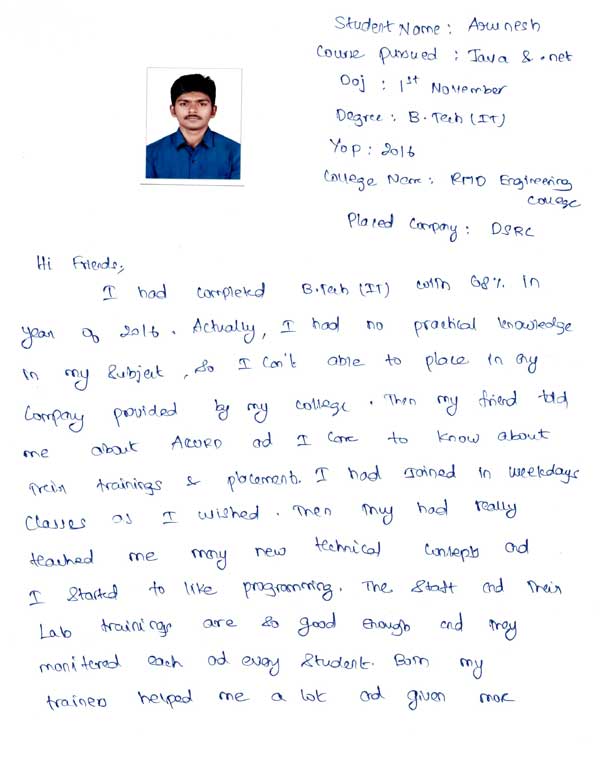 Student Name : Aswinesh
Course pursued : Java & .net
Doj : 1st November
Degree : B.Tech (IT)
Yop : 2016
College Name : RMD Engineering
College
Placed Company : DSRC
Hi Friends,
I had completed B.Tech (IT) with 68% in
year of 2016. Actually, I had no practical knowledge
in my Subject, So I Can't able to place in any
Company provided by my college. Then my friend told
me about and I Came to know about
their trainings & placement. I had Joined in weekdays
Classes as I wished. Then they had really
teached me many new technical Concepts and
I Started to like programming. The Staff and their
Lab trainings are so good enough and they
monitered each and every Student. Both my
trainers helped me a lot and given more